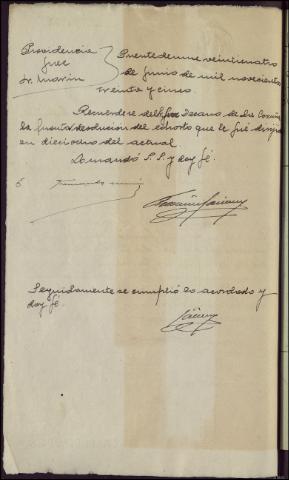 Providencia
Juez
Sr. Marin
Puentedeume veinticuatro
de Junio de mil novecientos
treinta y cinco.
Recuerdese del Sr. Decano de la Coruña
la pronta devolucion del exhorto que le fué dirigido
en dieciocho del actual.
Lo mandó S.S. y doy fé.
Seguidamente se cumplió lo acordado y
doy fé.